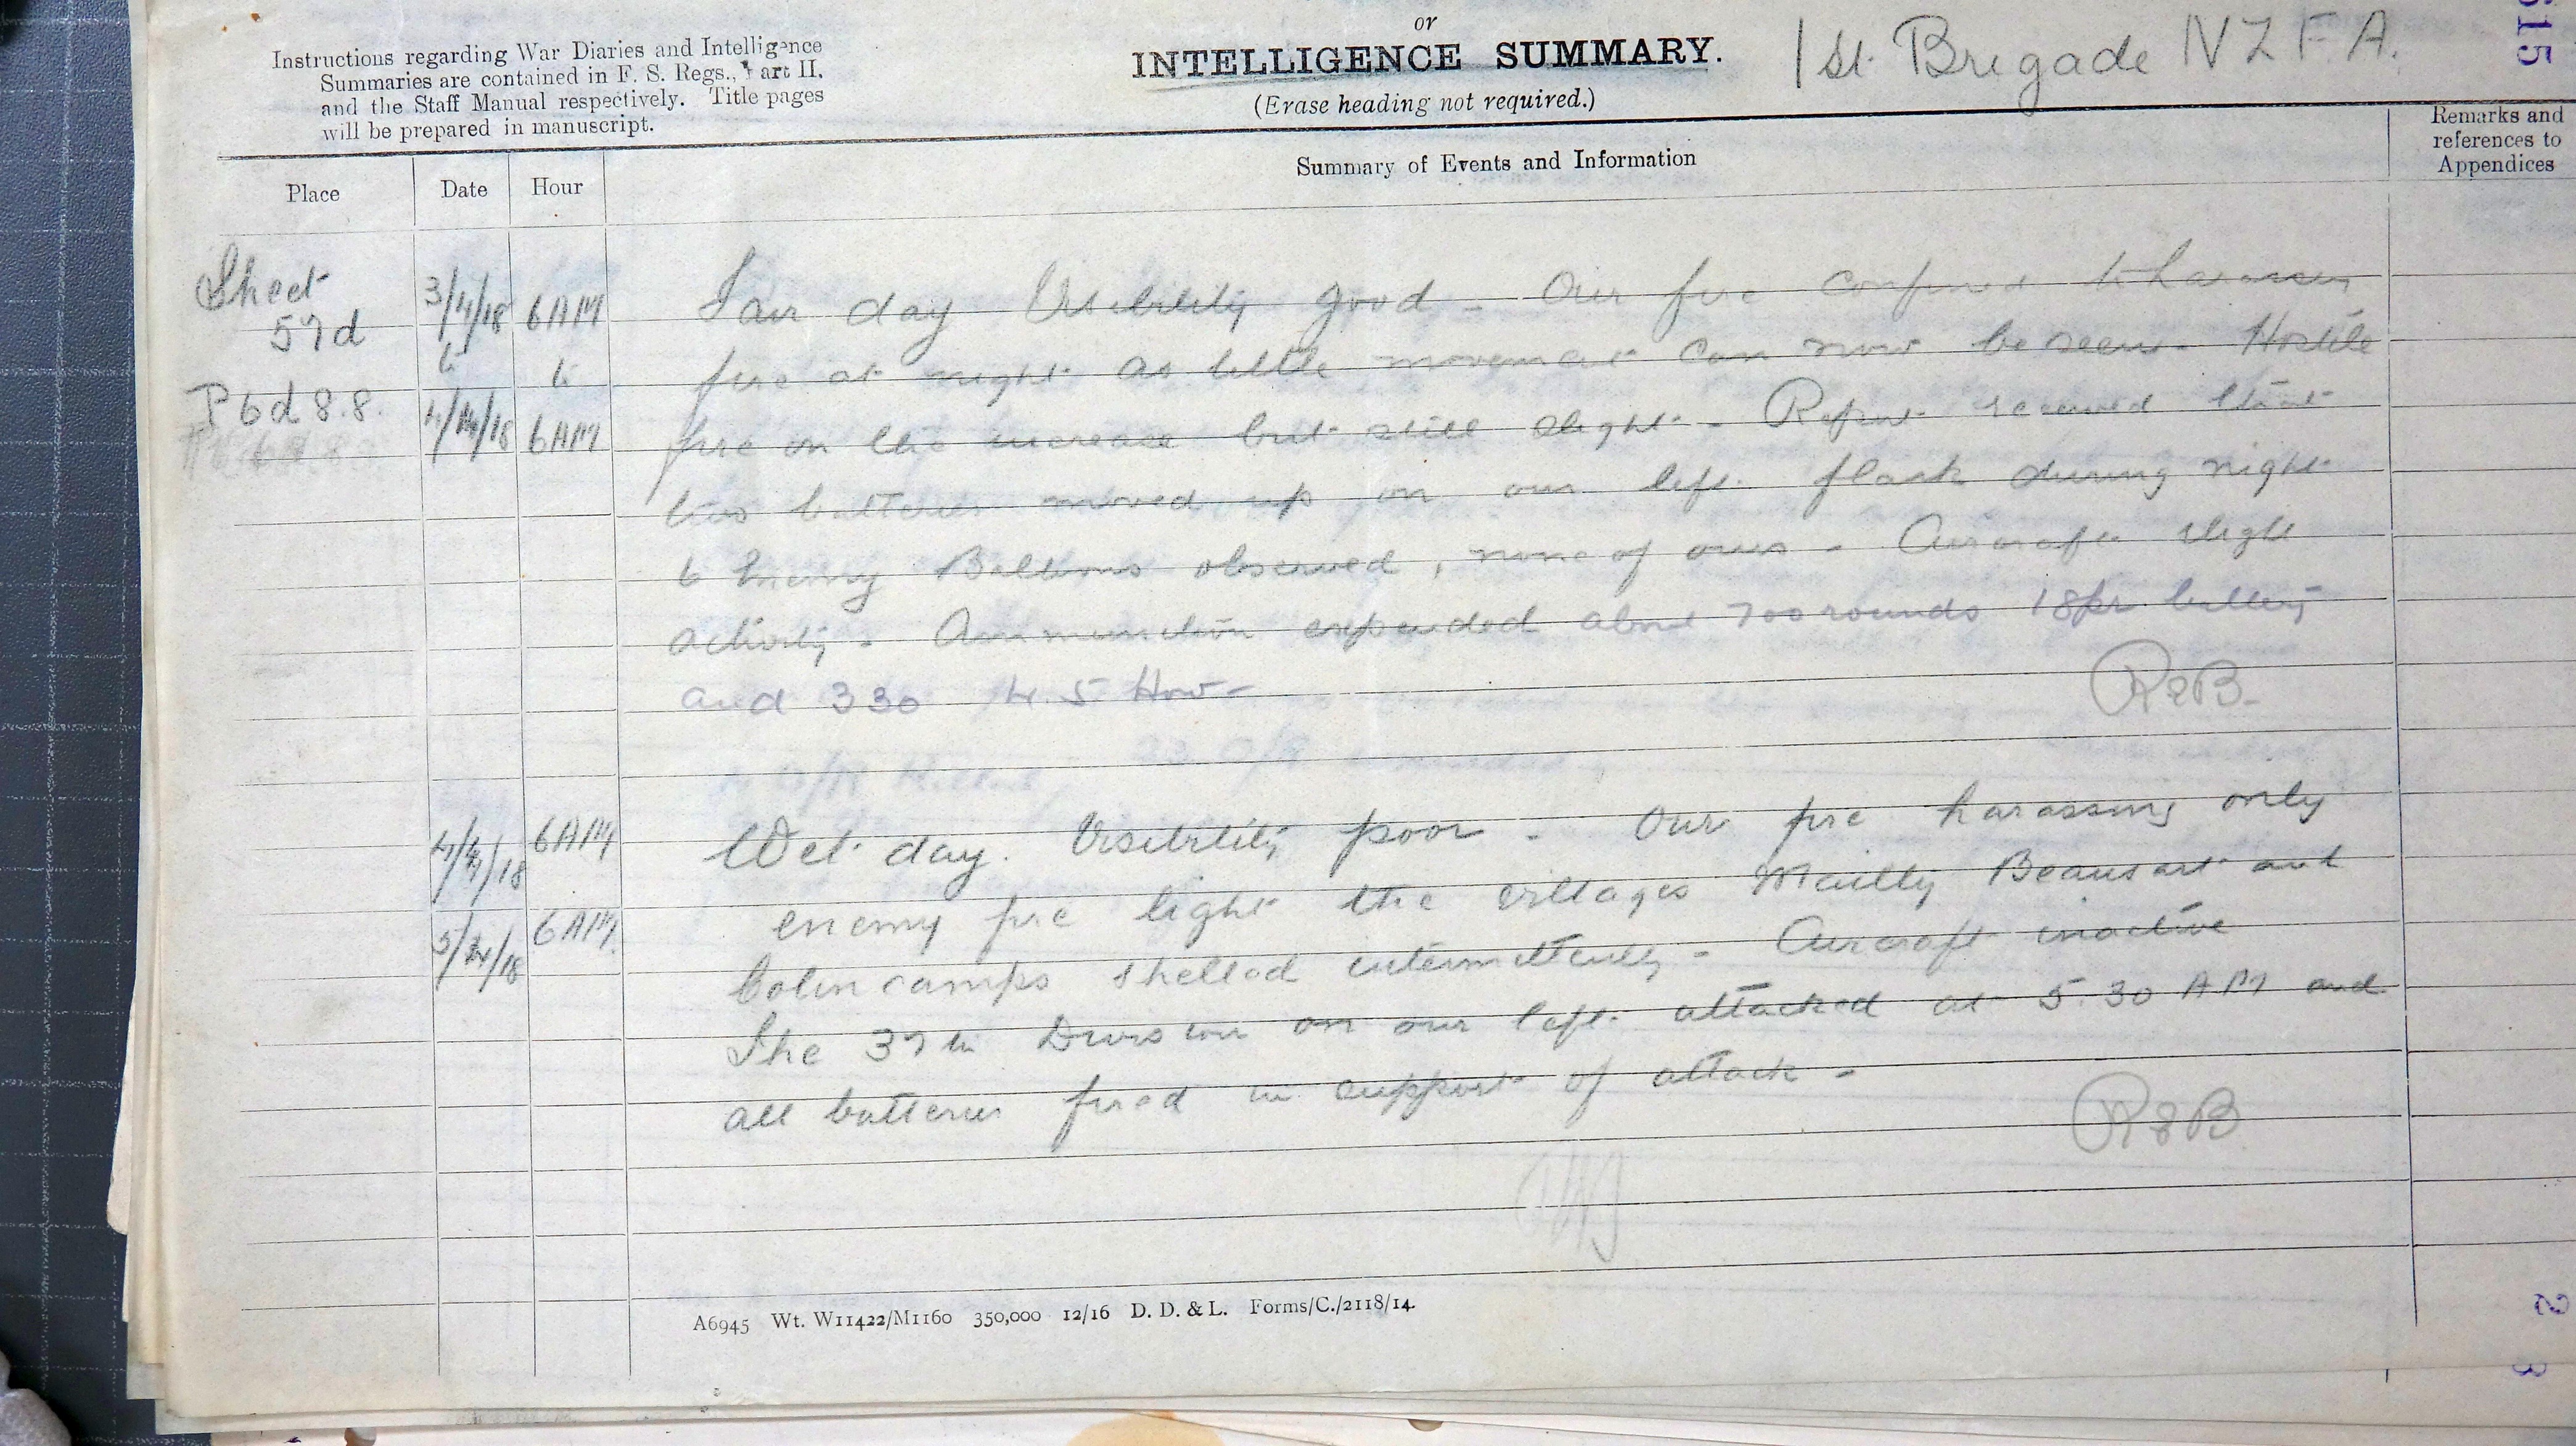 or
INTELLIGENCE SUMMARY.
(Erase heading not required.)
1st. Brigade NZFA.
Instructions regarding War Diaries and Intelligence
Summaries are contained in F. S. Regs., Part II.
and the Staff Manual respectively. Title pages
will be prepared in manuscript.
615
Place
Date
Hour
Summary of Events and Information
Remarks and
references to
Appendices
Sheet
57d
P6d 8.8.
3/4/18 6AM
to to
4/4/18 6AM
Fair day Visibility good - Our fire confined to harassing
fire at night as little movement can now be seen - Hostile
fire on the increase but still slight - Report received that
two batteries moved up on our left flank during night
6 Enemy Balloons observed, none of ours - Aircraft slight
activity - Ammunition expended about 700 rounds 18pr battery
and 330 4.5 How -
4/4/18 6AM
5/4/18 6AM
Wet day. Visibility poor - Our fire harassing only
enemy fire light the villages Mailly Beausart and
Colincamps shelled intermittently - Aircraft inactive
The 37th Division on our left attacked at 5.30 AM and
all batteries fired in support of attack -
A6945 Wt. W11422/M1160 350,000 12/16 D. D. & L. Forms/C./2118/14.